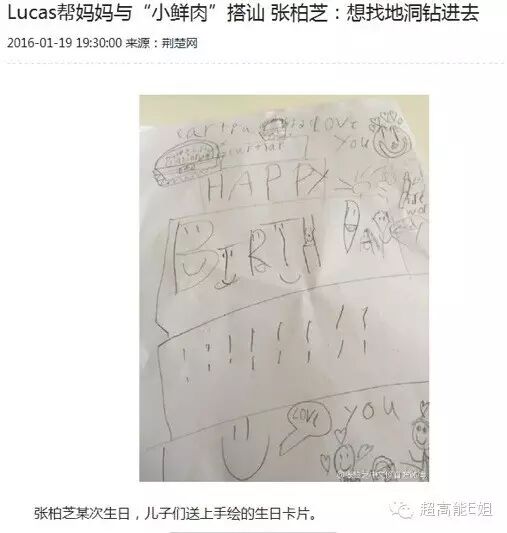 Lucas帮妈妈与“小鲜肉”搭讪 张柏芝：想找地洞钻进去
2016-01-19 19:30:00 来源：荆楚网
LOVE
YOU
HAPPY
BIRTH DAY
! ! ! ! ! ! ! !
LOVE YOU
张柏芝某次生日，儿子们送上手绘的生日卡片。
超高能E姐